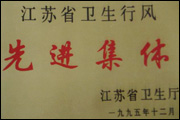 江苏省卫生行风
先进集体
江苏省卫生厅
一九九五年十二月